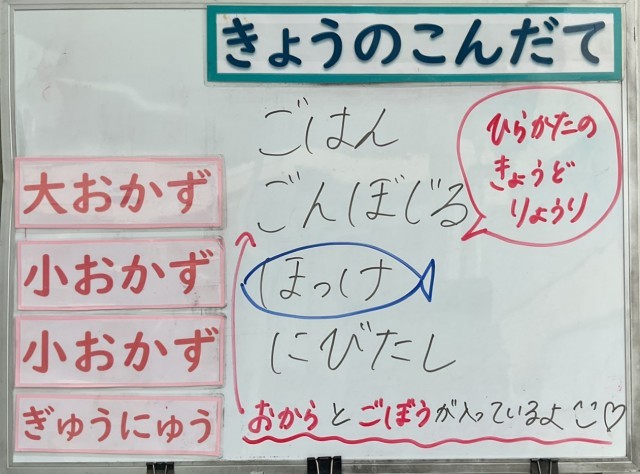 きょうのこんだて
ごはん
大おかず
ごんぼじる
ひらかたの
きょうど
りょうり
小おかず
ほっけ
小おかず
にびたし
ぎゅうにゅう
おからとごぼうが入っているよ